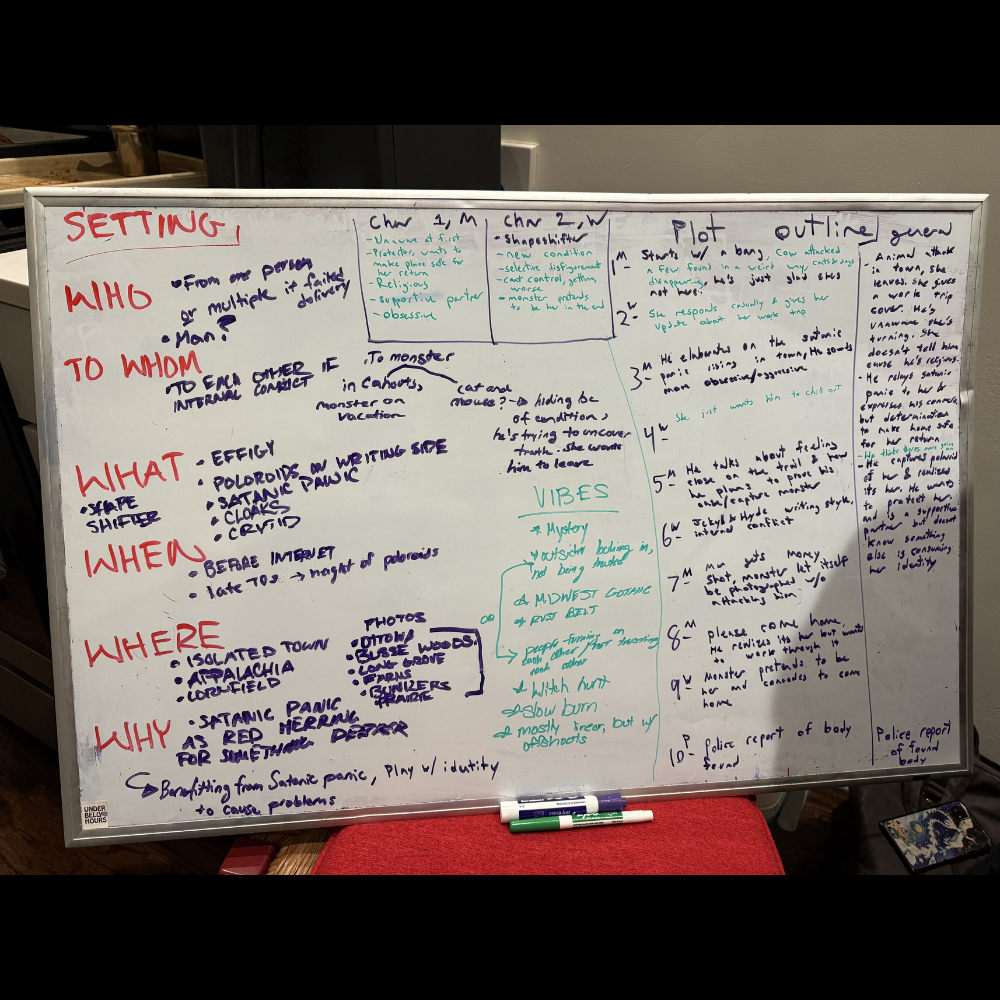 SETTING
WHO
• From one person
or multiple if failed
delivery
• Man?
TO WHOM
• TO EACH OTHER IF
INTERNAL CONFLICT
• To monster
in cahouts,
monster on
vacation
cat and
mouse? → hiding bc
of condition,
he's trying to uncover
truth. She wants
him to leave
WHAT
• SHAPE
SHIFTER
• EFFIGY
• POLOROIDS ON WRITING SIDE
• SATANIC PANIC
• CLOAKS
• CRYTID
WHEN
• BEFORE INTERNET
• late 70s → height of poloroids
WHERE
• ISOLATED TOWN
• APPALACHIA
• CORNFIELD
PHOTOS
• OTTOWA
• BUSSE WOODS
• LONG GROVE
• FARMS
• BUNKERS
PRAIRIE
WHY
• SATANIC PANIC
AS RED HERRING
FOR SOMETHING DEEPER
Benefitting from Satanic panic, Play w/ identity
to cause problems
UNDER
BELLY
HOURS
Char 1, M
- Unaware at first
- Protector, wants to
make place safe for
her return
- Religious
- supportive partner
- obsessive
Char 2, W
- Shapeshifter
- new condition
- selective disfigurement
- cant control, getting
worse
- monster pretends
to be her in the end
VIBES
Mystery
outsider looking in,
not being trusted
OR
MIDWEST GOTHIC
RUST BELT
people turning on
each other / not trusting
each other
Witch hunt
slow burn
mostly linear, but w/
offshoots
Plot outline
1 M - Starts w/ a bang, Cow attacked
a few found in a weird way, cats & dogs
disappearing, he's just glad shes
not here.
2 W - She responds casually & gives her
update about her work trip
3 M - He elaborates on the satanic
panic rising in town, He sounds
more obsessive/aggressive
4 W She just wants him to chill out
5 M - He talks about feeling
close on the trail & how
he plans to prove his
capture monster
6 W - Jekyll & Hyde writing style,
internal conflict
7 M - Man gets money
shot, monster let itself
be photographed w/o
attacking him
8 M - please come home,
He realizes its her but wants
to work through it
9 W - Monster pretends to be
her and concedes to come
home
10 P - Police report of body
found
general
- Animal attack
in town, she
leaves. She gives
a work trip
cover. He's
unaware she's
turning. She
doesn't tell him
cause he's religious.
- He relays satanic
panic to her &
expresses his concern,
but determination
to make home safe
for her return
- He captures polaroid
of her & realizes
its her. He wants
to protect her
and is a supportive
partner but doesnt
know something
else is consuming
her identity
Police report
of found
body